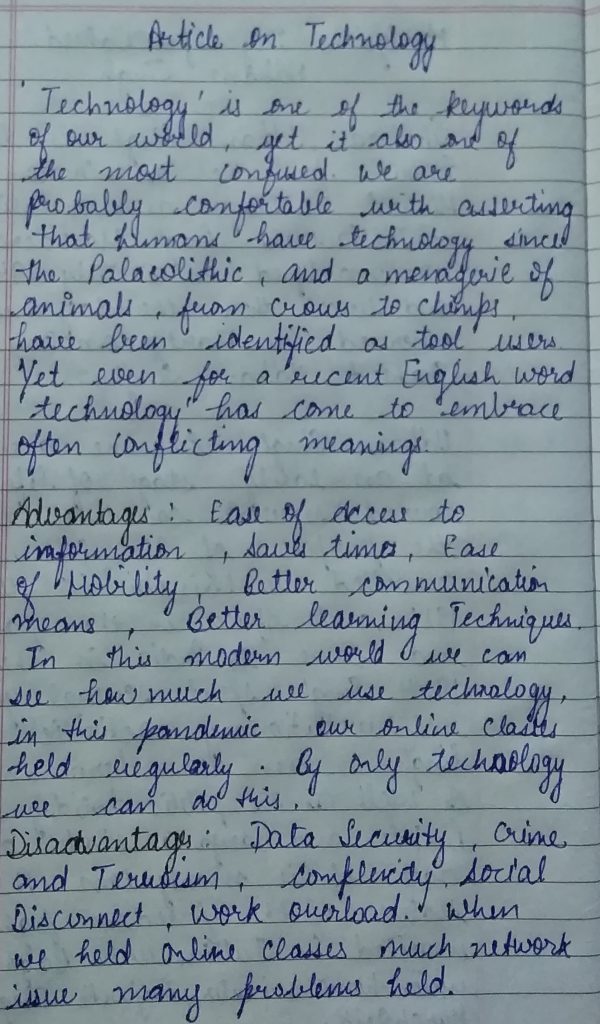 Article on Technology
'Technology' is one of the keywords
of our world, yet it also one of
the most confused. We are
probably confortable with asserting
that humans have technology since
the Palaeolithic, and a menagerie of
animals, from crows to chimps,
have been identified as tool users.
Yet even for a recent English word
'technology' has come to embrace
often conflicting meanings.
Advantages: Ease of access to
imformation, saves time, Ease
of Mobility, Better communication
means, Better learning Techniques.
In this modern world we can
see how much we use technology,
in this pandemic our online classes
held regularly. By only technology
we can do this.
Disadvantages: Data Security, Crime
and Terroism, complexcity, Social
Disconnect, work overload. When
we held online classes much network
issue many problems held.